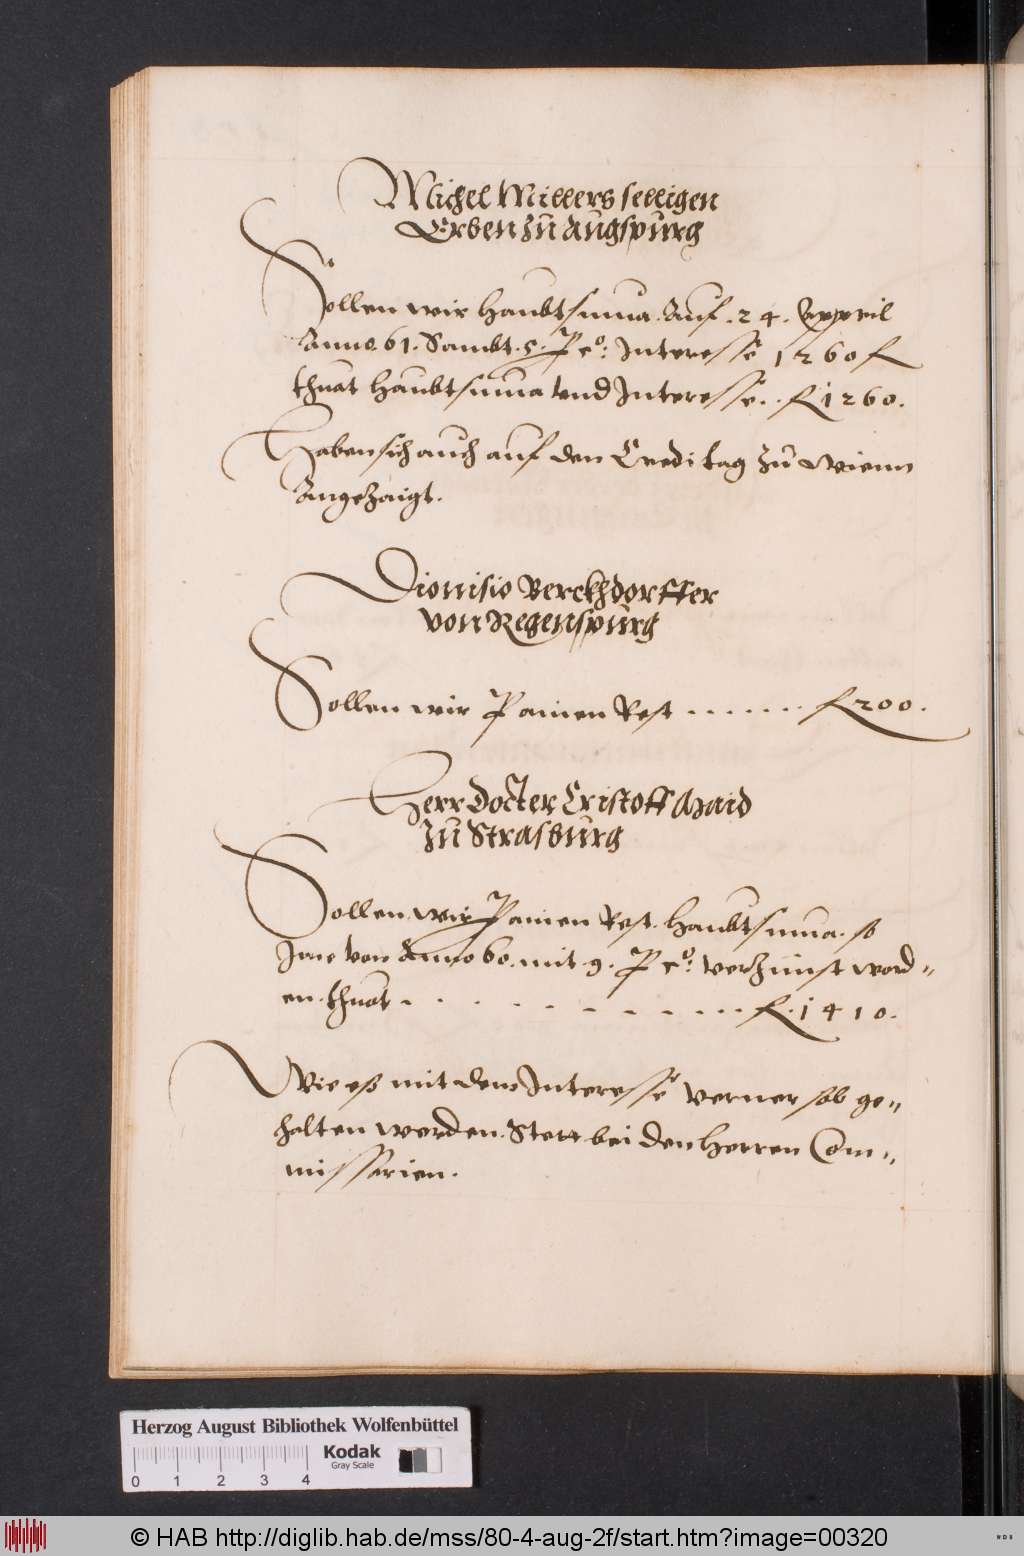 Michel Millers selligen
Erben zů Augspurg
Sollen wir haubtsuma. Auf. 24. Appril
Anno. 61. Sambt. 5. P co: Interesse 1260 f
thuat haubtsuma vnd Interesse. . f 1260.
Haben sich auch auf den Creditag zů Wienn
Angezaigt.
Dionisio Berckhdorffer
von Regenspurg
Sollen wir P ainen Rest ....... f 200.
Herr Docter Cristoff Haid
zů Strasburg
Sollen wir P ainen Rest. haubtsuma. so
Ime von Anno 60. mit 9. P co: verzinst word„
en. thuat . . . . . . . . . . f. 1410.
Wie es mit dem Interesse verner sol ge„
halten werden. Stett bei den Herren Com„
missarien.
Herzog August Bibliothek Wolfenbüttel
Kodak
Gray Scale
0 1 2 3 4
© HAB http://diglib.hab.de/mss/80-4-aug-2f/start.htm?image=00320